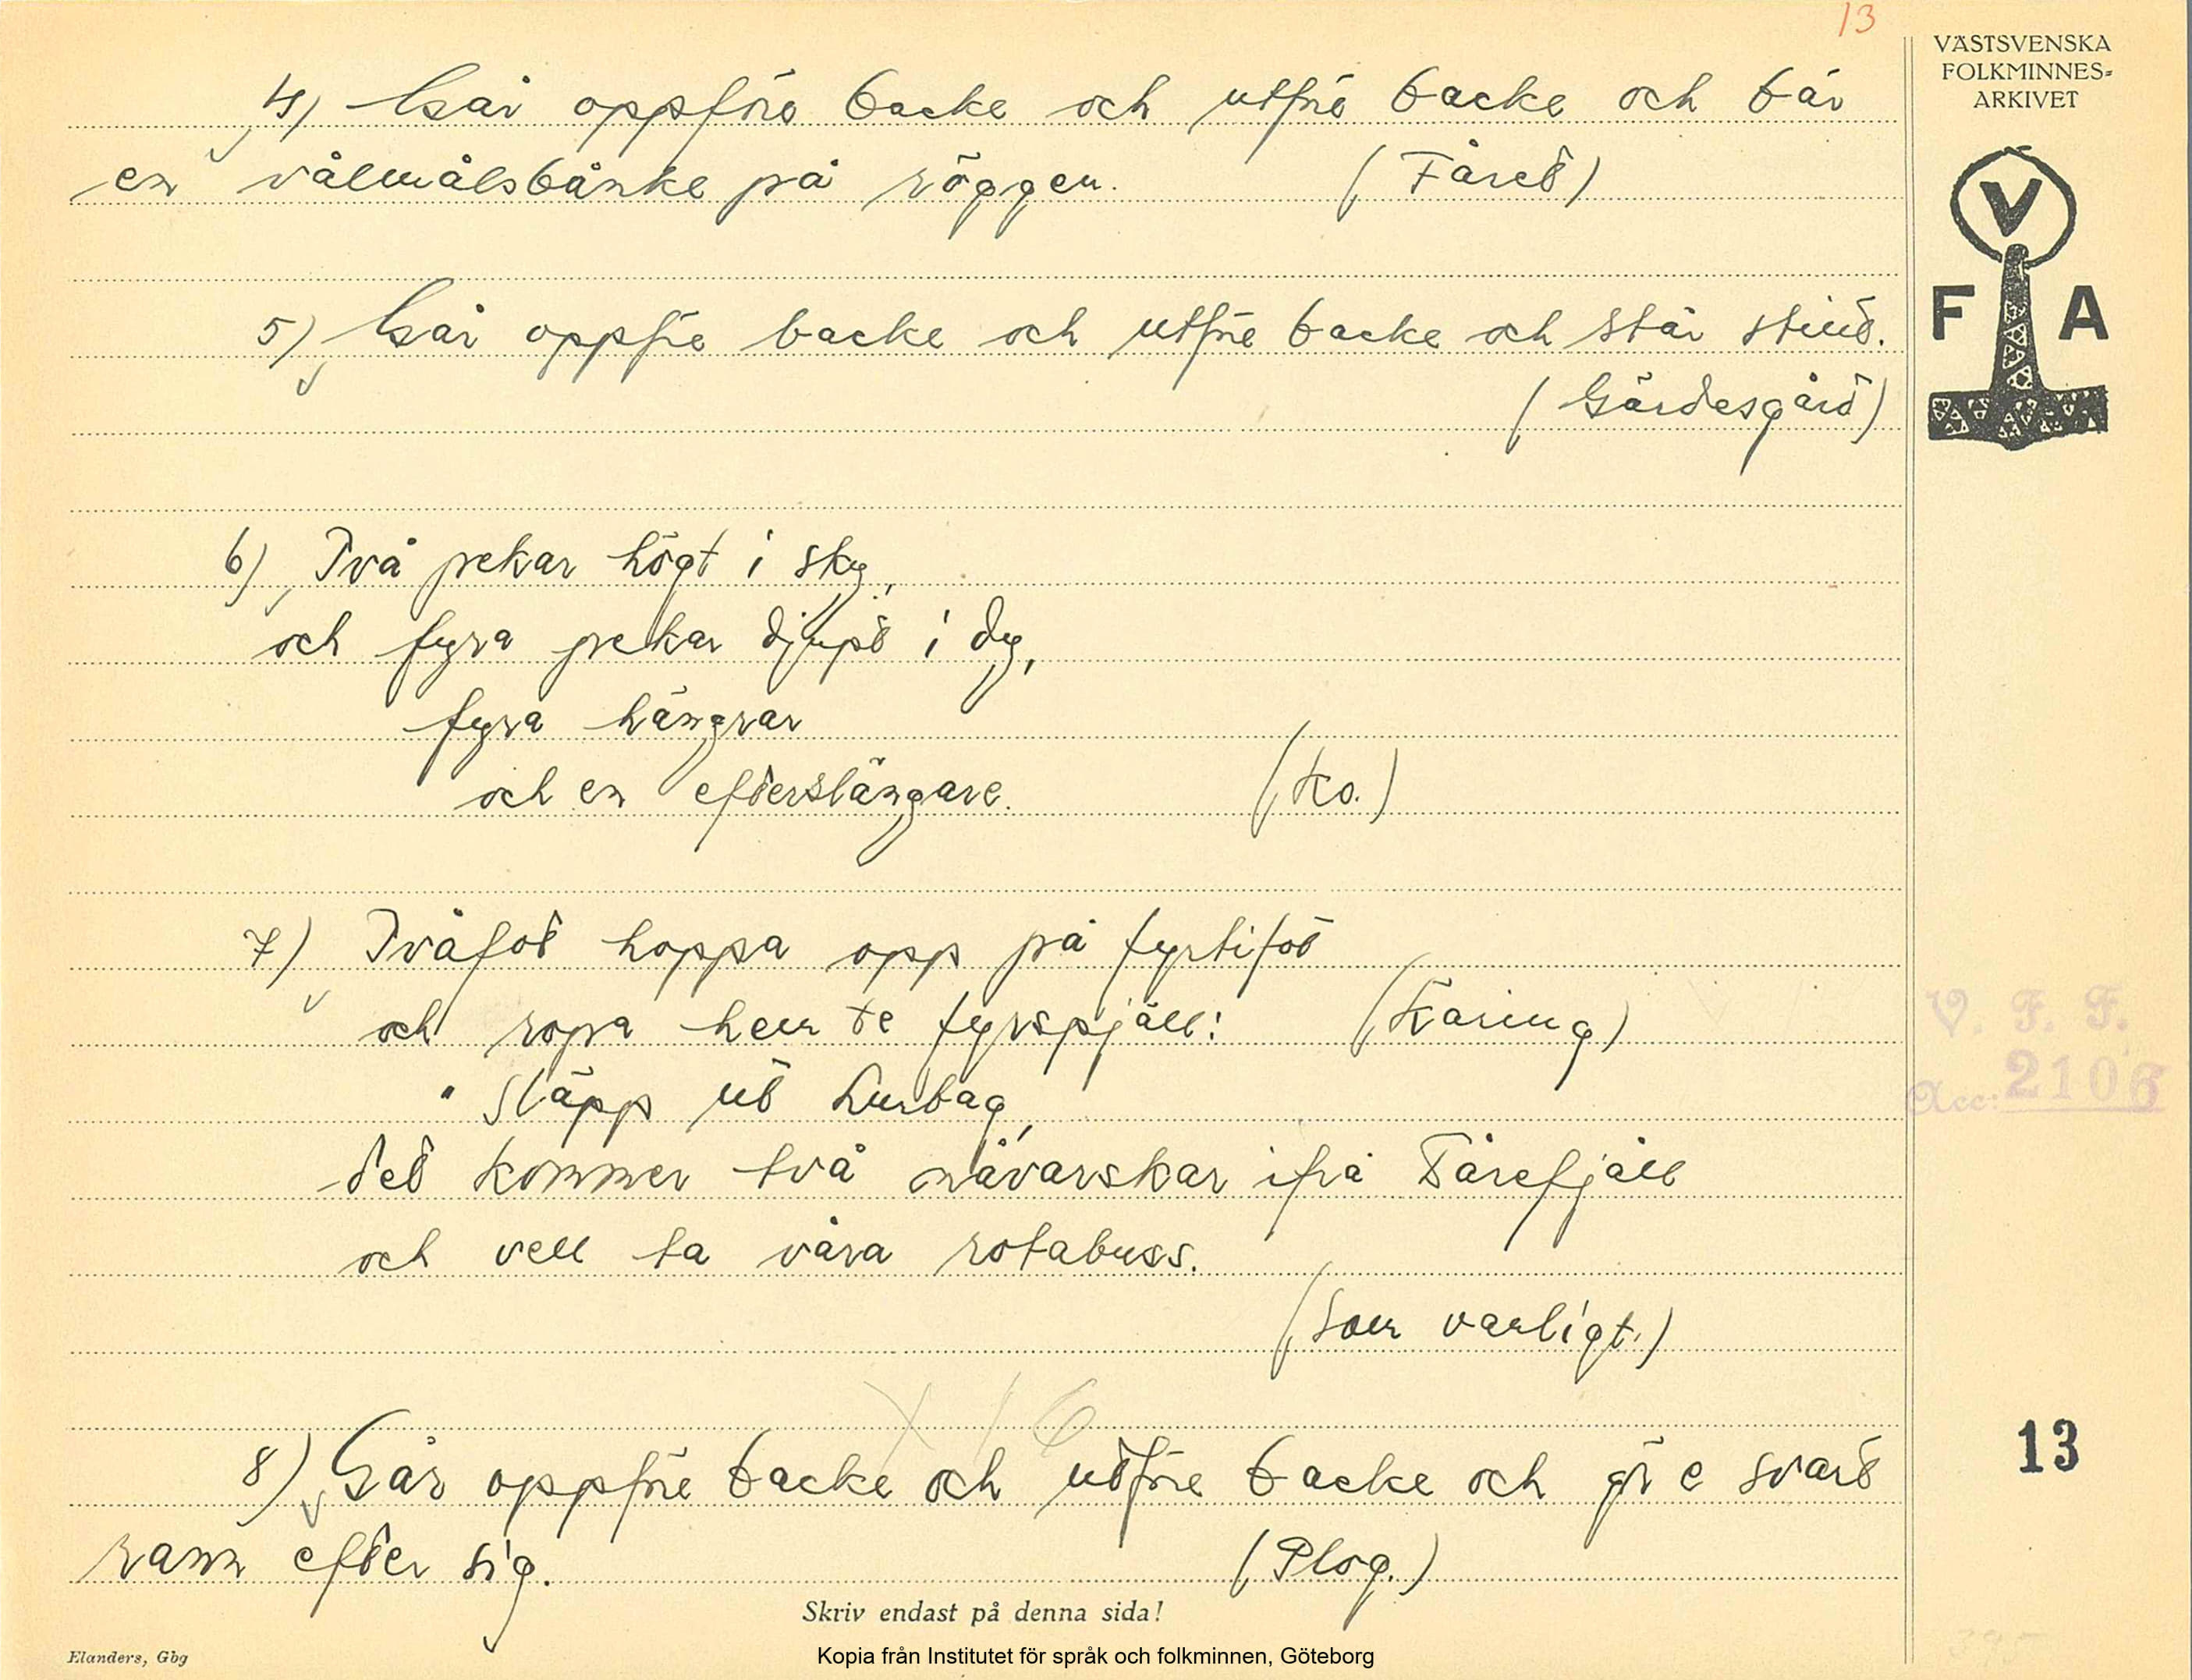 13
VÄSTSVENSKA
FOLKMINNES-
ARKIVET
V
F A
4) Går oppföre backe och utfre backe och bär
en vålmålsbånke på röggen. (Fåret)
5) Går oppfre backe och utfre backe och står still.
(Gärdesgård)
6) Två pekar högt i sky,
och fyra pekar djupt i dy,
fyra hängrar
och en efterslängare. (Ko.)
7) Tvåfot hoppa opp på fyrtifot
och ropa hem te fyrspjäll: (Käring)
"Släpp ut Lurbag,
det kommer två nåvarskar ifrå Fårefjäll
och vell ta våra rotabuss.
(Som vanligt.)
X 16
8) Går oppfre backe och utfre backe och gör e svart
rann efter sig. (Plog.)
V. F. F.
Acc: 2106
13
Skriv endast på denna sida!
Elanders, Gbg
Kopia från Institutet för språk och folkminnen, Göteborg